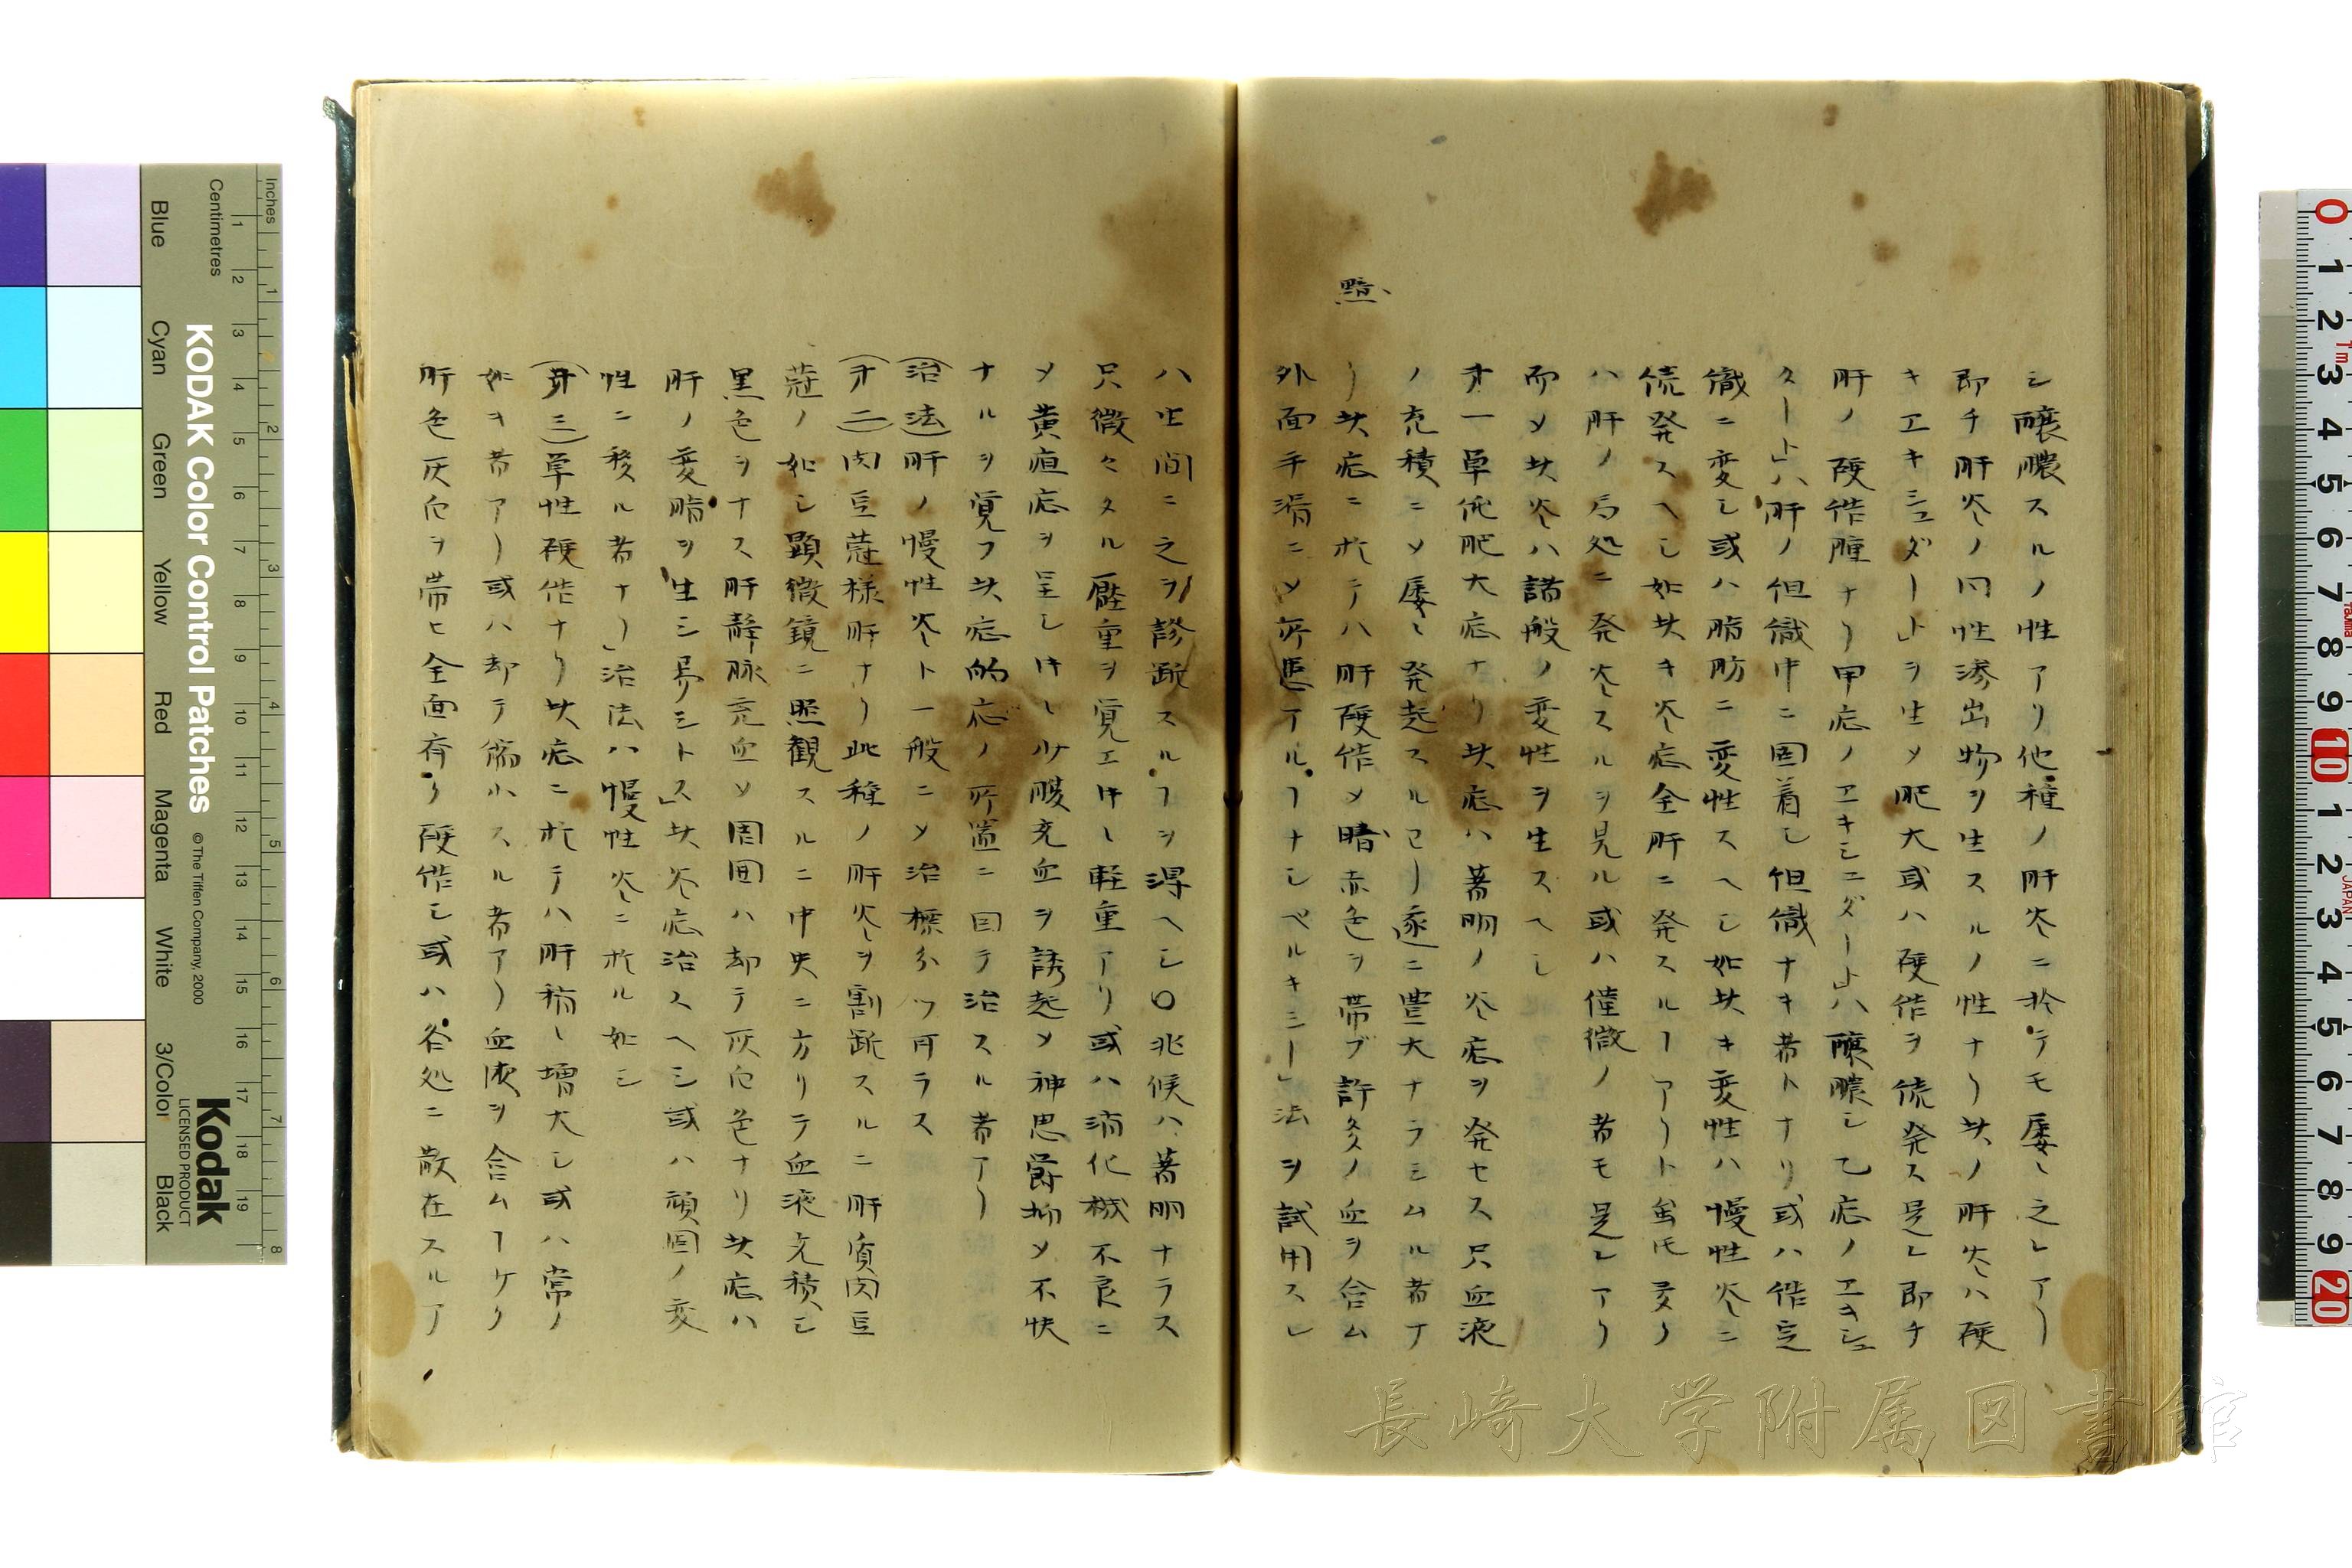 シ醸膿スルノ性アリ他種ノ肝炎ニ於テモ屡〻之レアリ
即チ肝炎ノ同性滲出物ヲ生スルノ性ナリ此ノ肝炎ハ硬
キエキシュダート」ヲ生メ肥大或ハ硬作ヲ続発ス是レ即チ
肝ノ硬作腫ナリ甲症ノエキシュダート」ハ醸膿シ乙症ノエキシュ
タート」ハ肝ノ但織中ニ固着シ但織ナキ者トナリ或ハ作它
織ニ変シ或ハ脂肪ニ変性スヘシ如此キ変性ハ慢性炎ニ
続発スヘシ如此キ炎症全肝ニ発スルヿアリト虽𪜈
ハ肝ノ局処ニ発炎スルヲ見ル或ハ僅微ノ者モ是レアリ
而メ此炎ハ諸般ノ変性ヲ生スヘシ
才一単純肥大症ナリ此症ハ著明ノ炎症ヲ発セス只血液
ノ充積ニメ屡〻発起スルヿ遂ニ豊大ナラシムル者ナ
リ此症ニ於テハ肝硬作メ暗赤色ヲ帯ブ許多ノ血ヲ含ム
黯
外面平滑ニメ アルヿナシペルキシー」法ヲ試用スレ
ハ此間ニ之ヲ診断スルヿヲ得ヘシ〇兆候ハ著明ナラス
只微々タル壓重ヲ覚エ 軽重アリ或ハ消化機不良ニ
メ黄疸症ヲ呈シ 少腹充血ヲ誘起メ神思鬱抑メ不快
ナルヲ覚フ此症的症ノ所置ニ因テ治スル者アリ
(治法)肝ノ慢性炎ト一般ニメ治標分ツ可ラス
(才二)肉豆蔻様肝ナリ此種ノ肝炎ヲ割断スルニ肝質肉豆
蔻ノ如シ顕微鏡ニ照観スルニ中央ニ方リテ血液充積シ
黒色ヲナス肝静脉充血メ周囲ハ却テ灰白色ナリ此症ハ
肝ノ変脂ヲ生シ易シトス」此炎症治スヘシ或ハ頑固ノ変
性ニ移ル者ナリ」治法ハ慢性炎ニ於ル如シ
(才三)単性硬作ナリ此症ニ於テハ肝稍〻増大シ或ハ常ノ
如キ者アリ或ハ却テ縮小スル者アリ血液ヲ含ムヿケリ
肝色灰白ヲ帯ヒ全面 リ硬作シ或ハ各処ニ散在スルア
長崎大学附属図書館
KODAK Color Control Patches
© The Tiffen Company, 2000
Kodak
LICENSED PRODUCT
Inches
Centimetres
Blue
Cyan
Green
Yellow
Red
Magenta
White
3/Color
Black
JAPAN